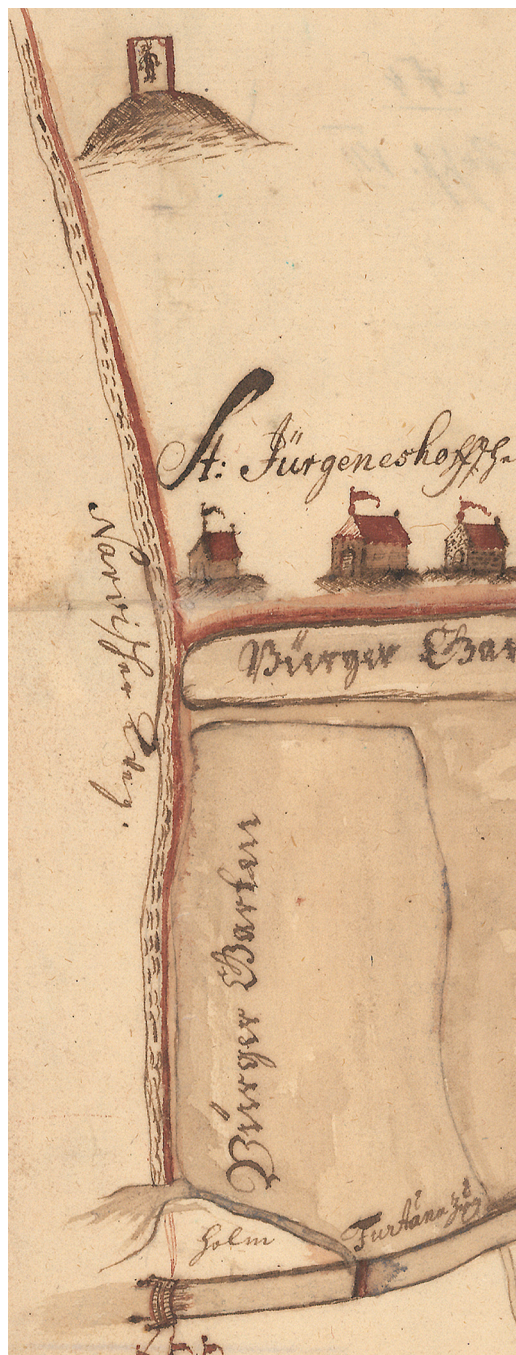 St: Jürgeneshoff
Narvischer Weg.
Bürger Gar
Bürger Garten
Holm
Furtäna